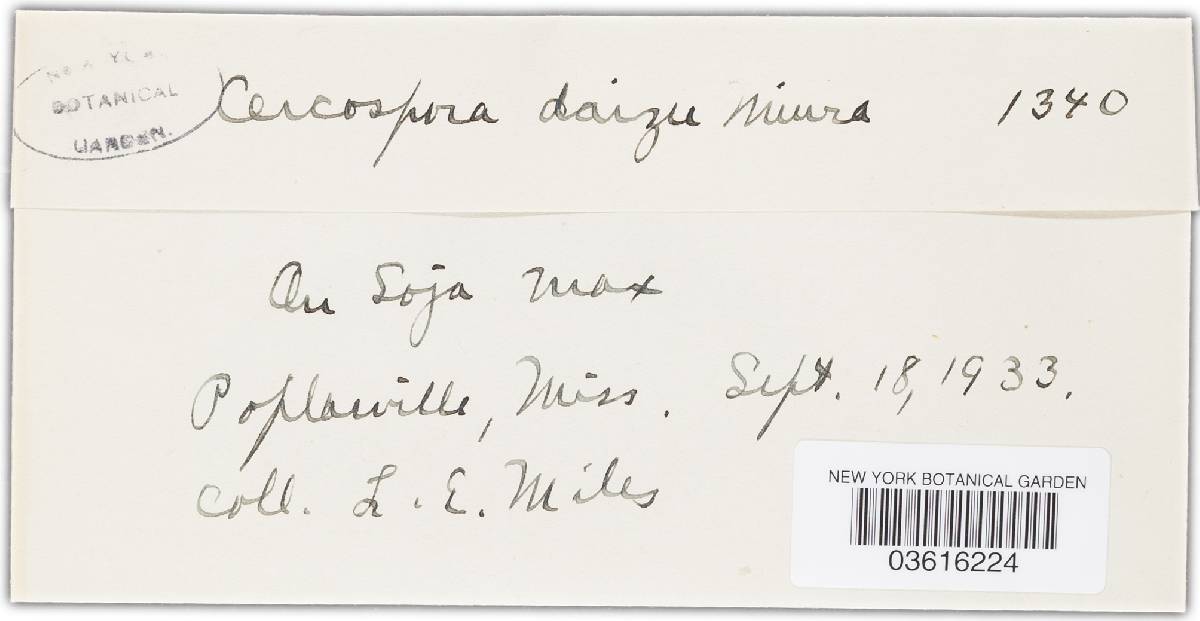 NEW YORK
BOTANICAL
GARDEN.
Cercospora daizu Miura 1340
On Soja max
Poplarville, Miss. Sept. 18, 1933.
coll. L. E. Miles
NEW YORK BOTANICAL GARDEN
03616224